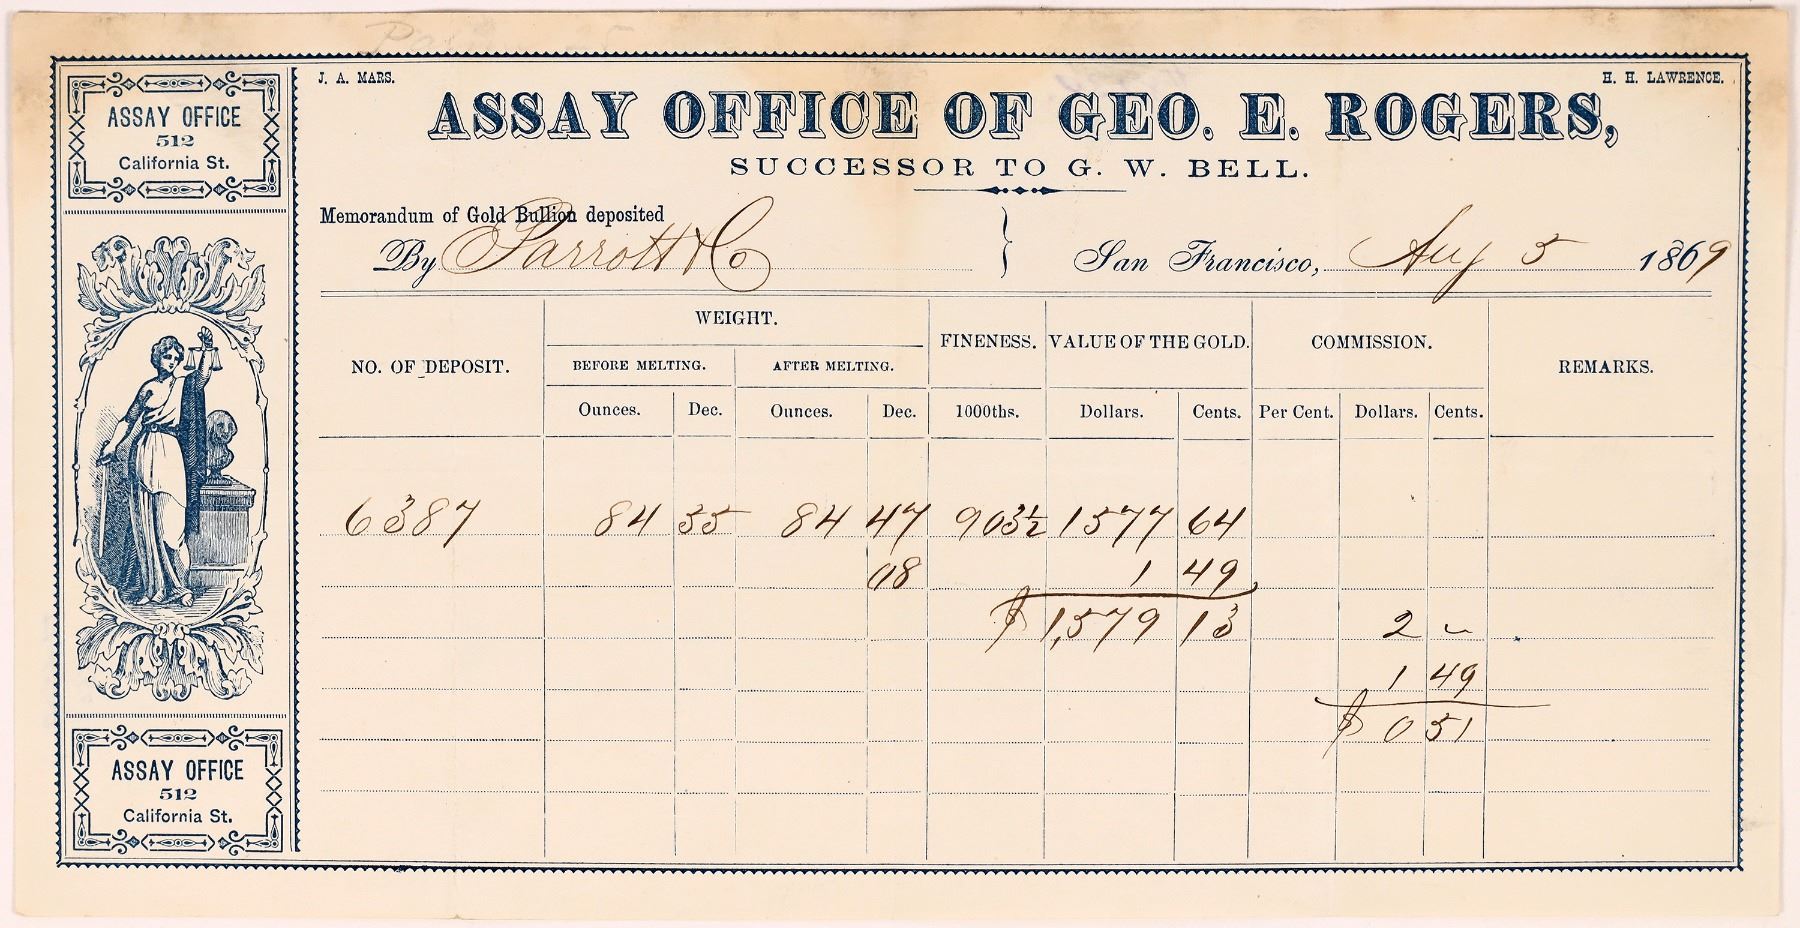 J. A. MARS.
H. H. LAWRENCE.
ASSAY OFFICE
512
California St.
ASSAY OFFICE OF GEO. E. ROGERS,
SUCCESSOR TO G. W. BELL.
Memorandum of Gold Bullion deposited
By Parrott & Co
San Francisco, Aug 5 1869
NO. OF DEPOSIT. WEIGHT. FINENESS. VALUE OF THE GOLD. COMMISSION. REMARKS.
BEFORE MELTING. AFTER MELTING.
Ounces. Dec. Ounces. Dec. 1000ths. Dollars. Cents. Per Cent. Dollars. Cents.
6387 84 35 84 47 903½ 1577 64
08 1 49
$ 1,579 13 2 ~
1 49
$ 0 51
ASSAY OFFICE
512
California St.